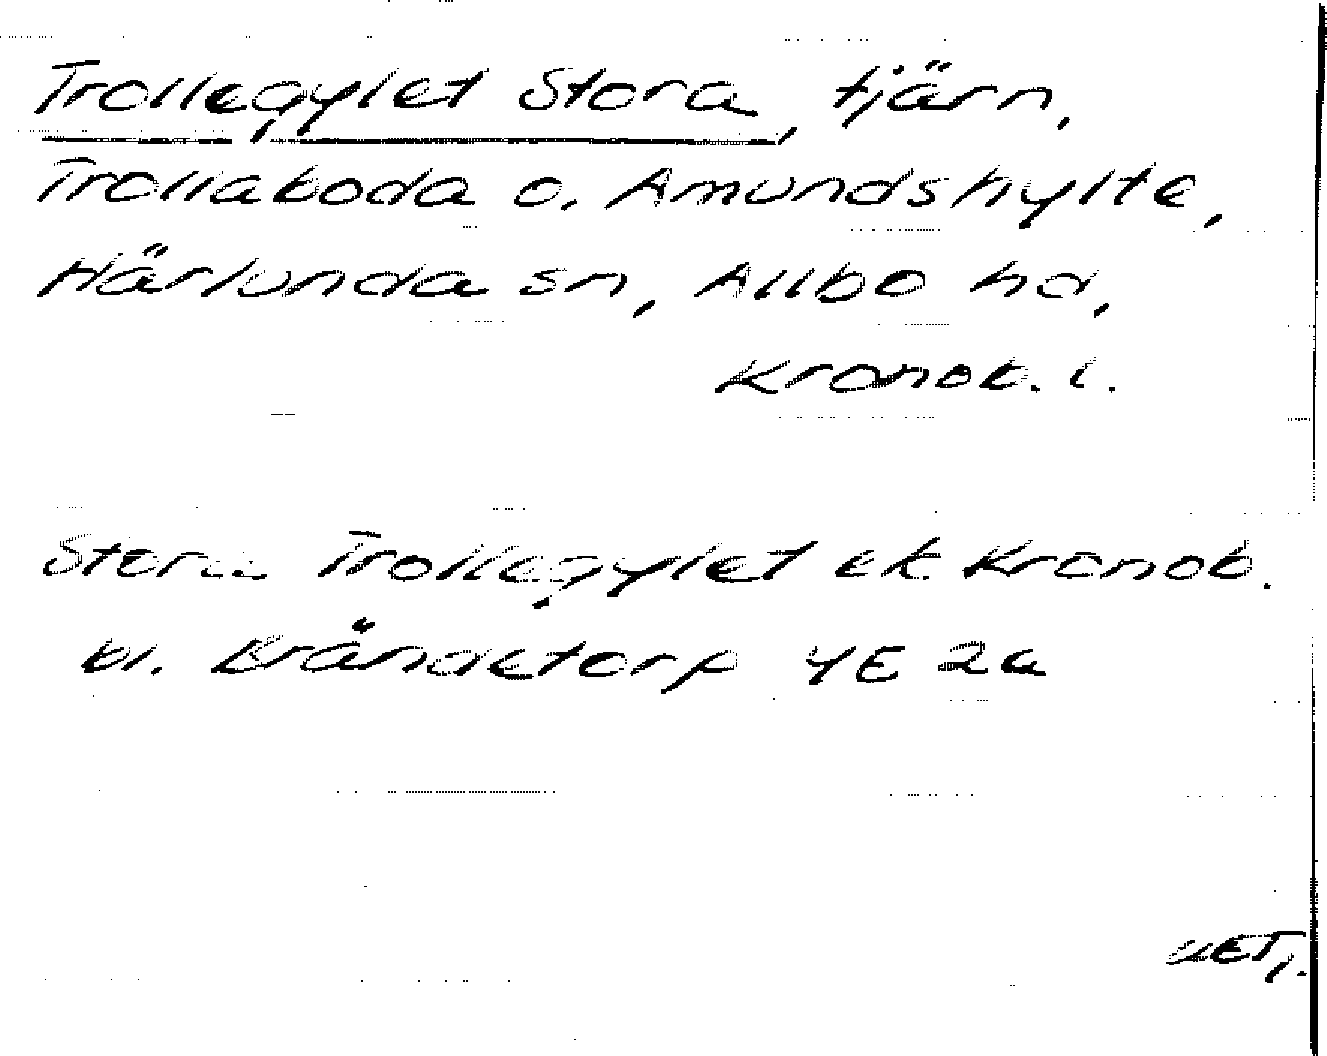 Trollegylet Stora, tjärn,
Trollaboda o. Amundshylte,
Härlunda sn, Allbo hd,
Kronob. l.
Stora Trollegylet ek Kronob.
bl. Brändetorp 4E 2a